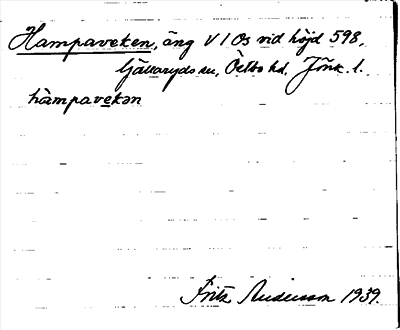 Hampaveken, äng V 1 Os vid höjd 598,
Gällaryds sn, Östbo hd, Jönk. l.
hàmpavekən
Fritz Andersson 1939.